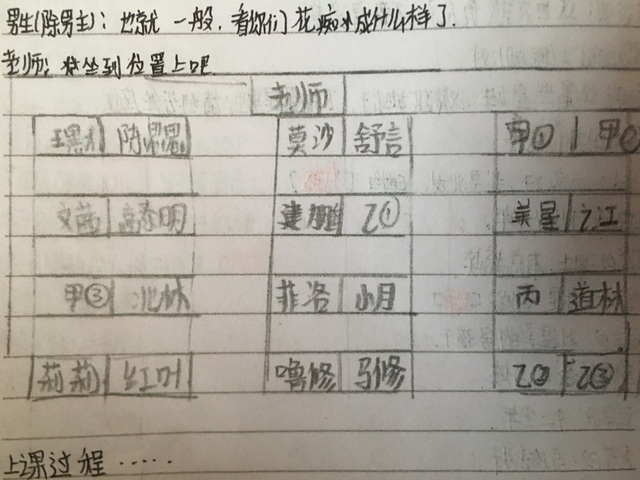 男生(除男主)：也就一般，看你们花痴成什么样了.
老师：坐到位置上吧
老师
陈思思 莫沙 舒言 甲① 甲
文茜 高泰明 建鹏 乙① 美星 之江
甲③ 北林 菲洛 小月 丙 道林
莉莉 红叶 噜修 马修 乙② 乙③
上课过程·····